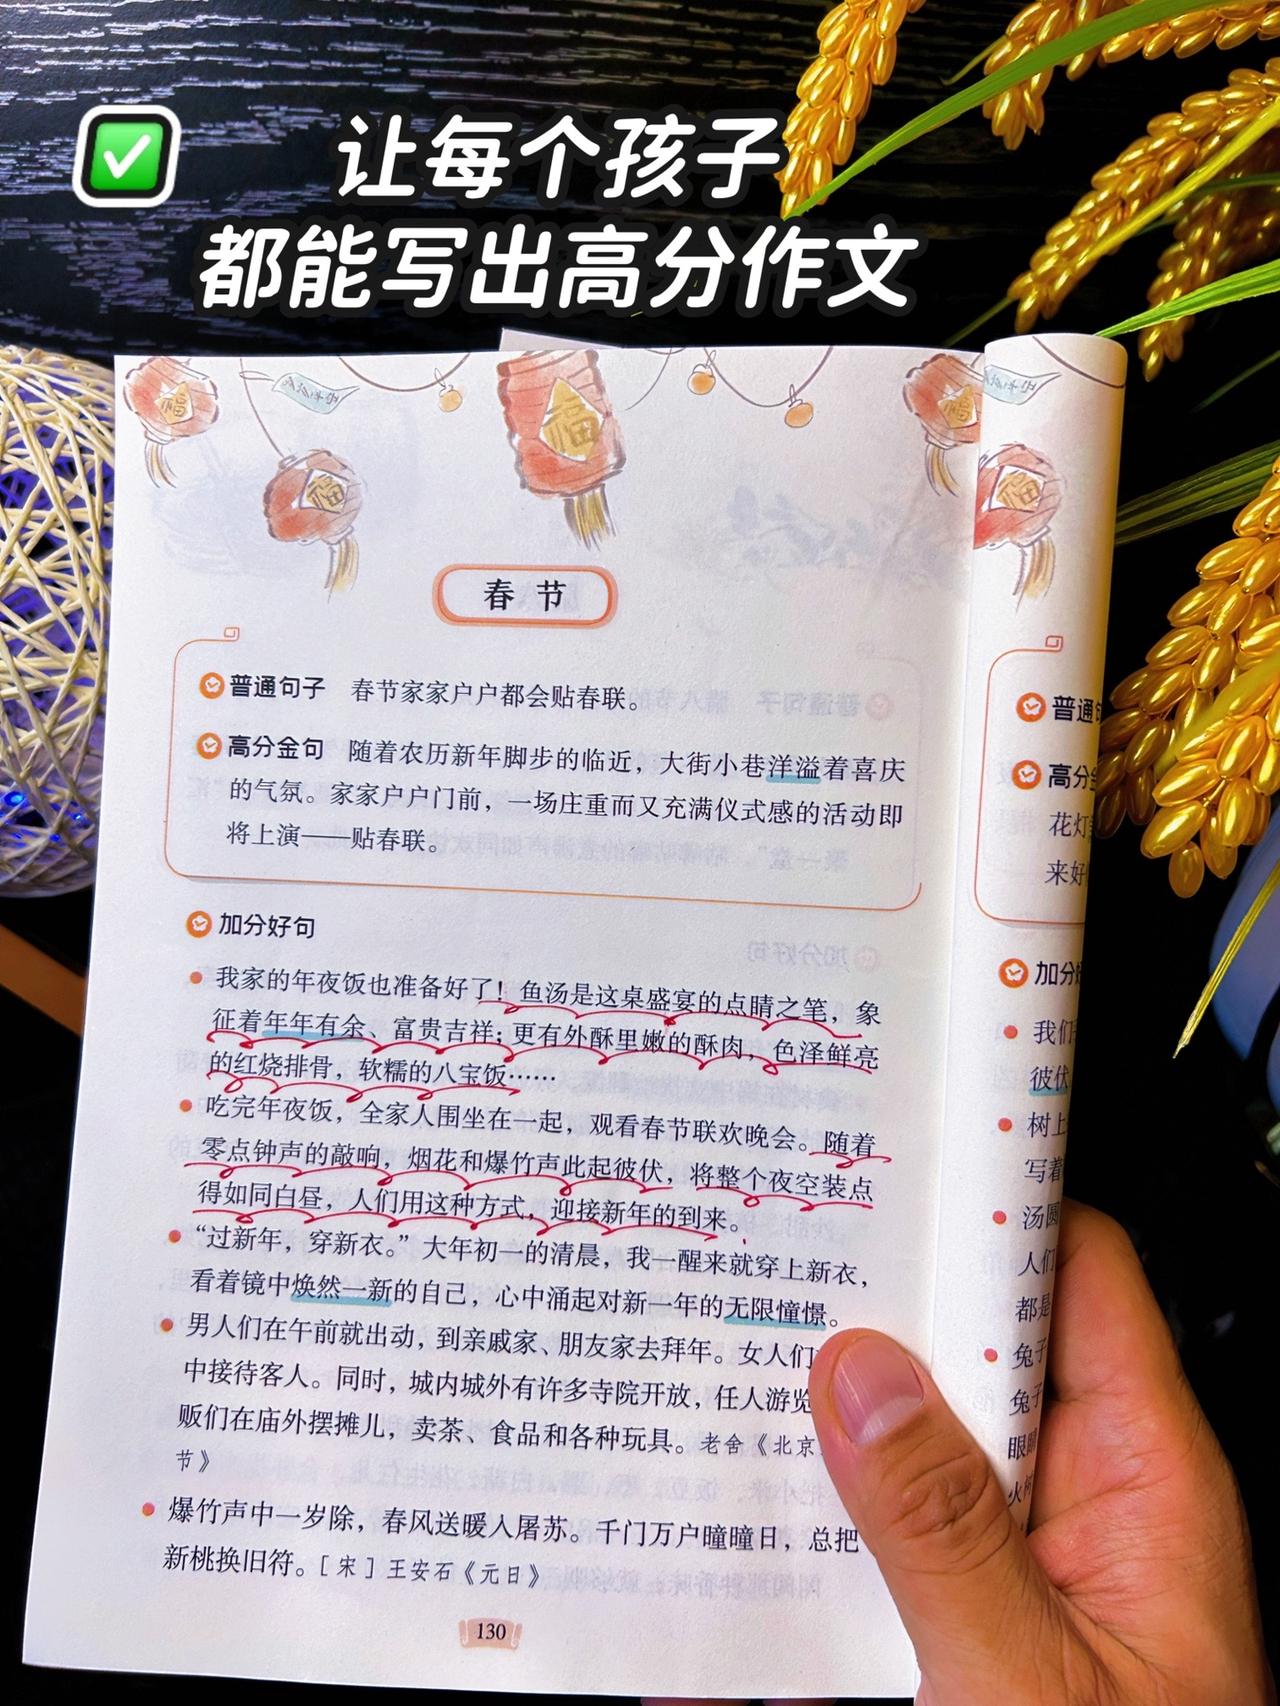 让每个孩子
都能写出高分作文
福
福
福
福
福
春节
普通句子 春节家家户户都会贴春联。
高分金句 随着农历新年脚步的临近，大街小巷洋溢着喜庆
的气氛。家家户户门前，一场庄重而又充满仪式感的活动即
将上演——贴春联。
加分好句
我家的年夜饭也准备好了！鱼汤是这桌盛宴的点睛之笔，象
征着年年有余、富贵吉祥；更有外酥里嫩的酥肉，色泽鲜亮
的红烧排骨，软糯的八宝饭……
吃完年夜饭，全家人围坐在一起，观看春节联欢晚会。随着
零点钟声的敲响，烟花和爆竹声此起彼伏，将整个夜空装点
得如同白昼，人们用这种方式，迎接新年的到来。
“过新年，穿新衣。”大年初一的清晨，我一醒来就穿上新衣，
看着镜中焕然一新的自己，心中涌起对新一年的无限憧憬。
男人们在午前就出动，到亲戚家、朋友家去拜年。女人们
中接待客人。同时，城内城外有许多寺院开放，任人游览
贩们在庙外摆摊儿，卖茶、食品和各种玩具。老舍《北京
节》
爆竹声中一岁除，春风送暖入屠苏。千门万户曈曈日，总把
新桃换旧符。［宋］王安石《元日》
130
普通
高分
花灯
来好
加分
我们
彼伏
树上
写着
汤圆
人们
都是
兔子
兔子
眼睛